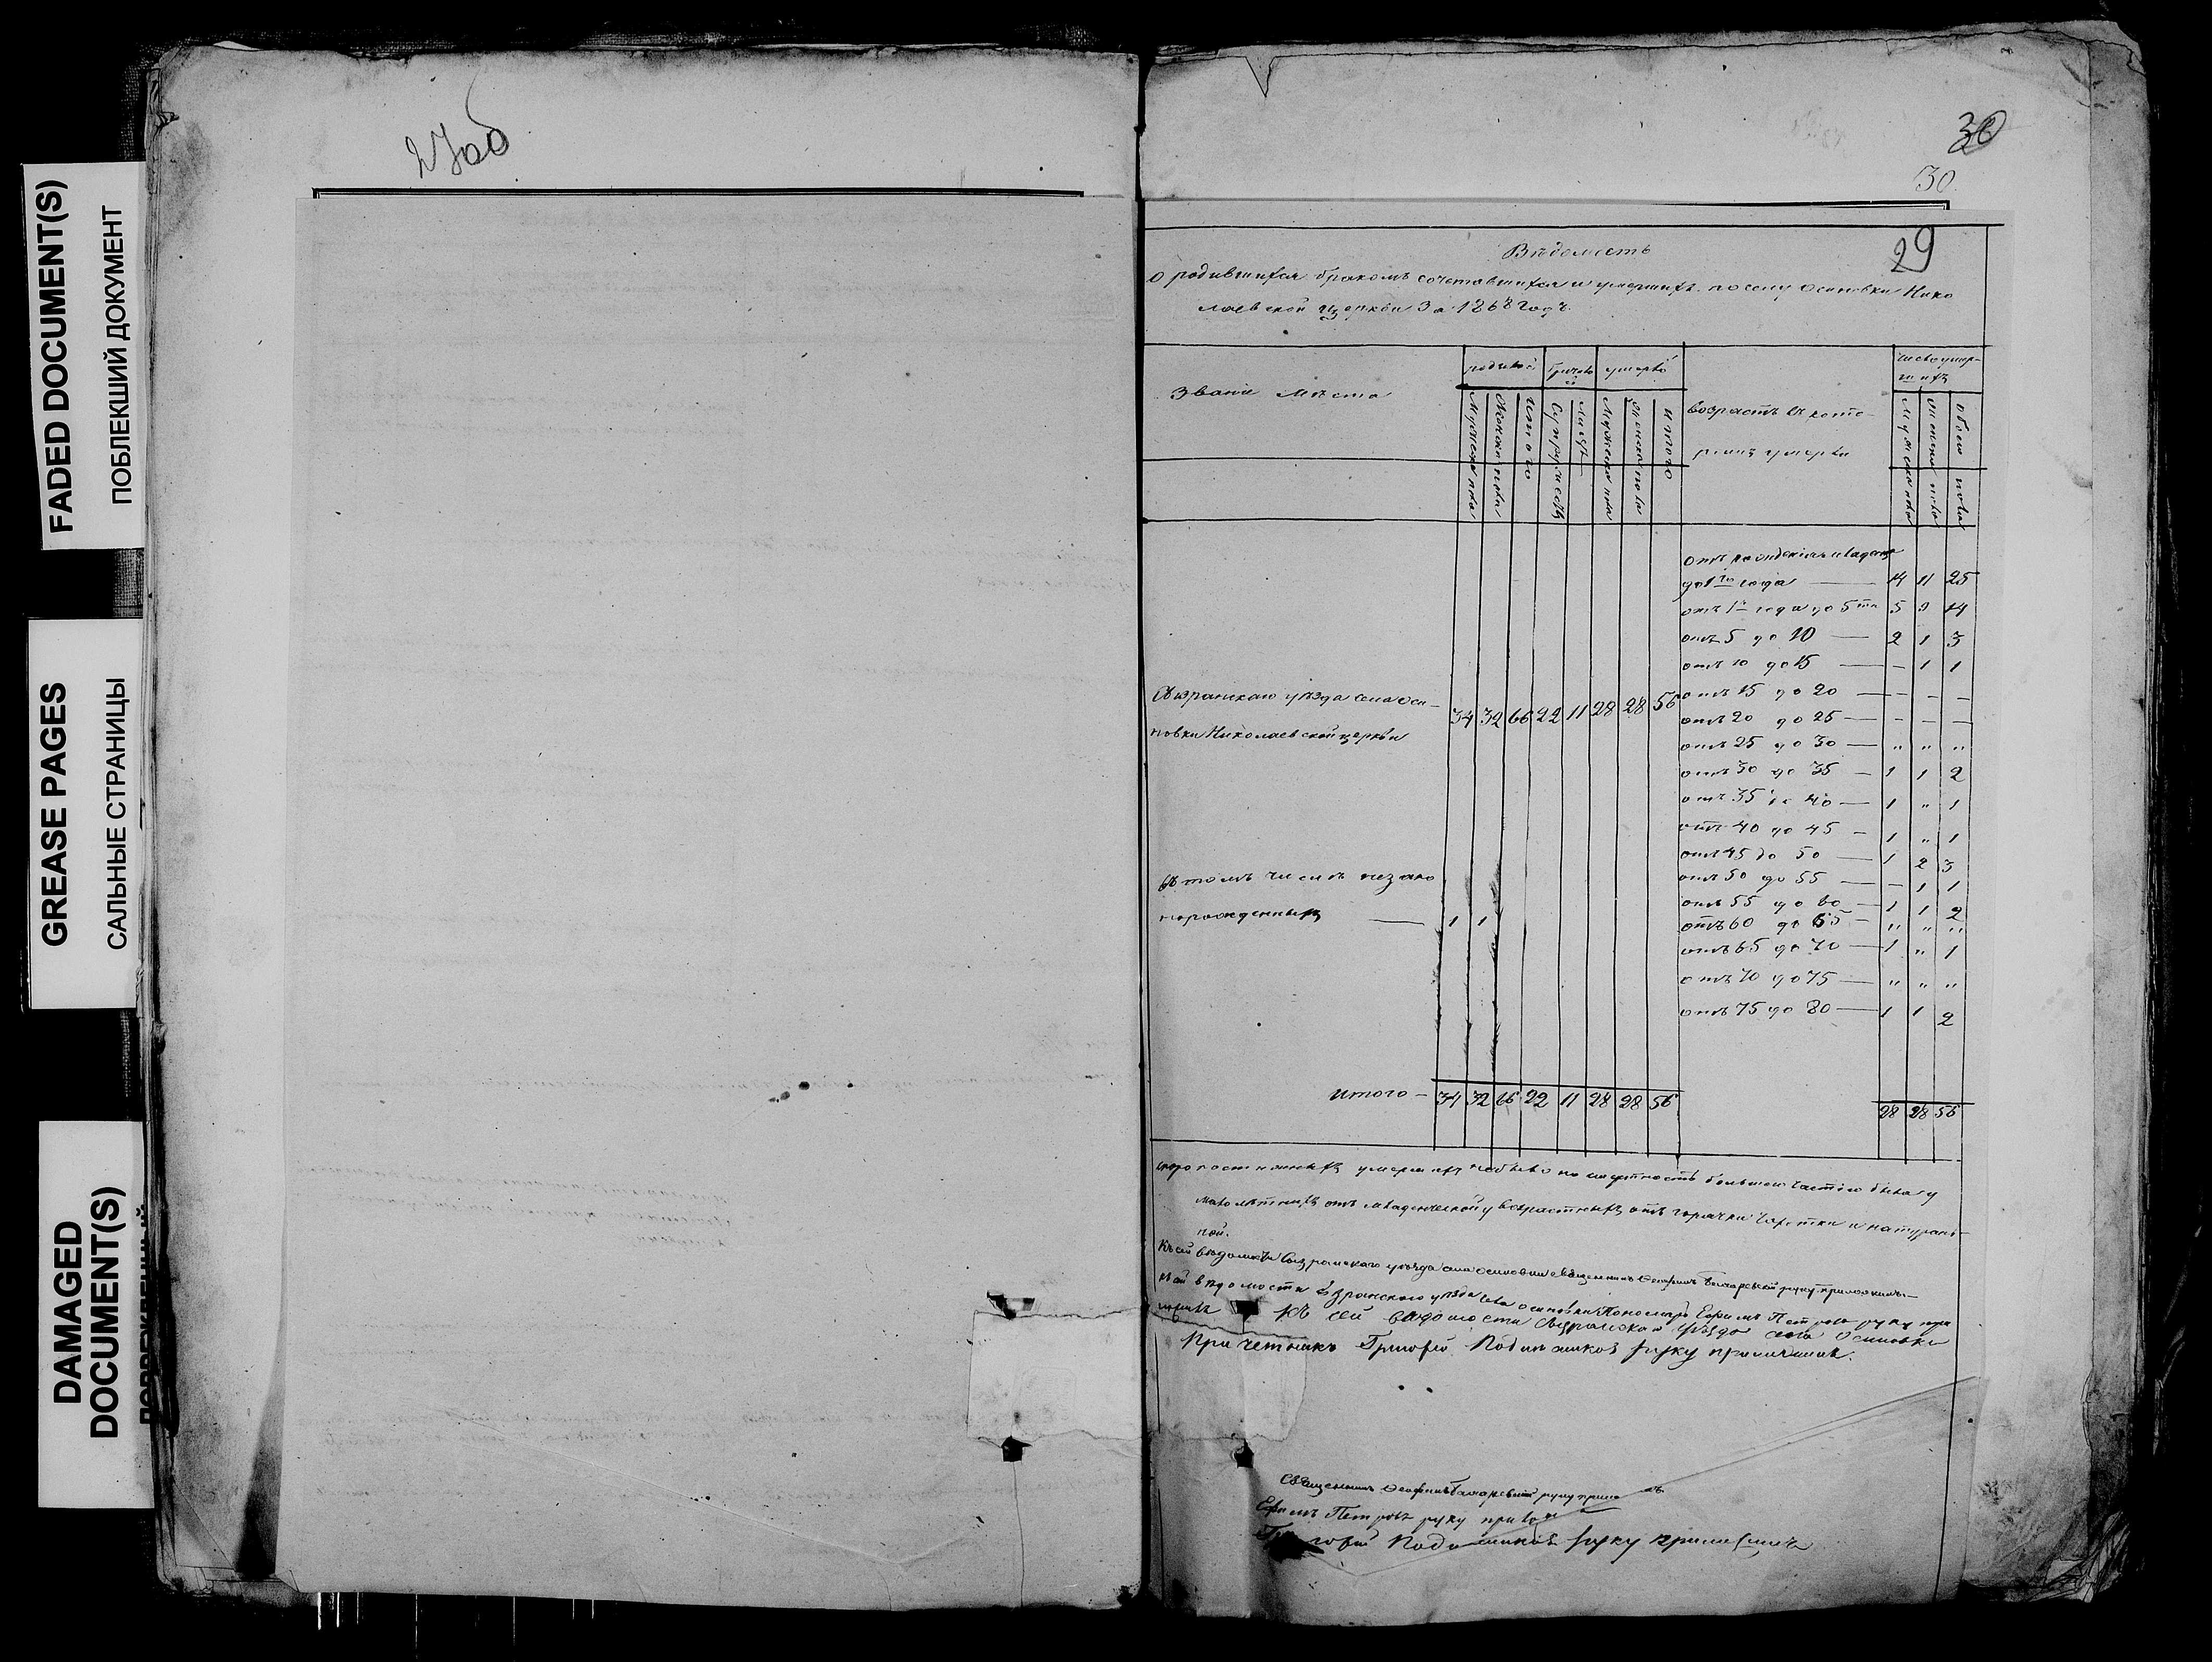 FADED DOCUMENT(S)
ПОБЛЕКШИЙ ДОКУМЕНТ
GREASE PAGES
САЛЬНЫЕ СТРАНИЦЫ
DAMAGED
DOCUMENT(S)
27об
30
30
29
Вѣдомость
о родившихся бракомъ сочетавшихся и умершихъ по селу Осиновки Нико
лаевской церкви За 1868 годъ.
Звание мѣста
родивш
умерш
возрастъ въ кото-
рыхъ умерли
число умер-
шихъ
Мужеска пола
Женска пола
Итого
Супружествъ
Мужеска пола
Женска пола
Итого
Мужеска пола
Женска пола
обоего пола
отъ рожденія младенца
до 1го года — 14 11 25
отъ 1го года до 5ти 5 9 14
отъ 5 до 10 — 2 1 3
отъ 10 до 15 — – 1 1
отъ 15 до 20 — – – –
отъ 20 до 25 — – – –
отъ 25 до 30 — " " "
отъ 30 до 35 — 1 1 2
отъ 35 до 40 — 1 " 1
отъ 40 до 45 — 1 " 1
отъ 45 до 50 — 1 2 3
отъ 50 до 55 — – 1 1
отъ 55 до 60 — 1 1 2
отъ 60 до 65 — " " "
отъ 65 до 70 — 1 " 1
отъ 70 до 75 — " " "
отъ 75 до 80 — 1 1 2
Сызранскаго уѣзда села Оси-
новки Николаевской церкви
34 32 66 22 11 28 28 56
Въ томъ числѣ незако
норожденныхъ — 1 1
Итого — 34 32 66 22 11 28 28 56
28 28 56
скоропостижныхъ умершихъ небыло смертность большею частію была у
малолѣтныхъ отъ младенческой у возрастныхъ отъ горячки чахотки и натураль-
ной.
Къ сей вѣдомости Сызранскаго уѣзда села Осиновки священникъ руку приложилъ
къ сей вѣдомости Сызранскаго уѣзда села Осиновки Пономарь Ефимъ Петровъ руку при
ложилъ Къ сей вѣдомости Сызранскаго уѣзда села Осиновки
Причетникъ Григорій руку приложилъ.
Священникъ руку прило лъ
Ефимъ Петровъ руку прилож
руку приложилъ